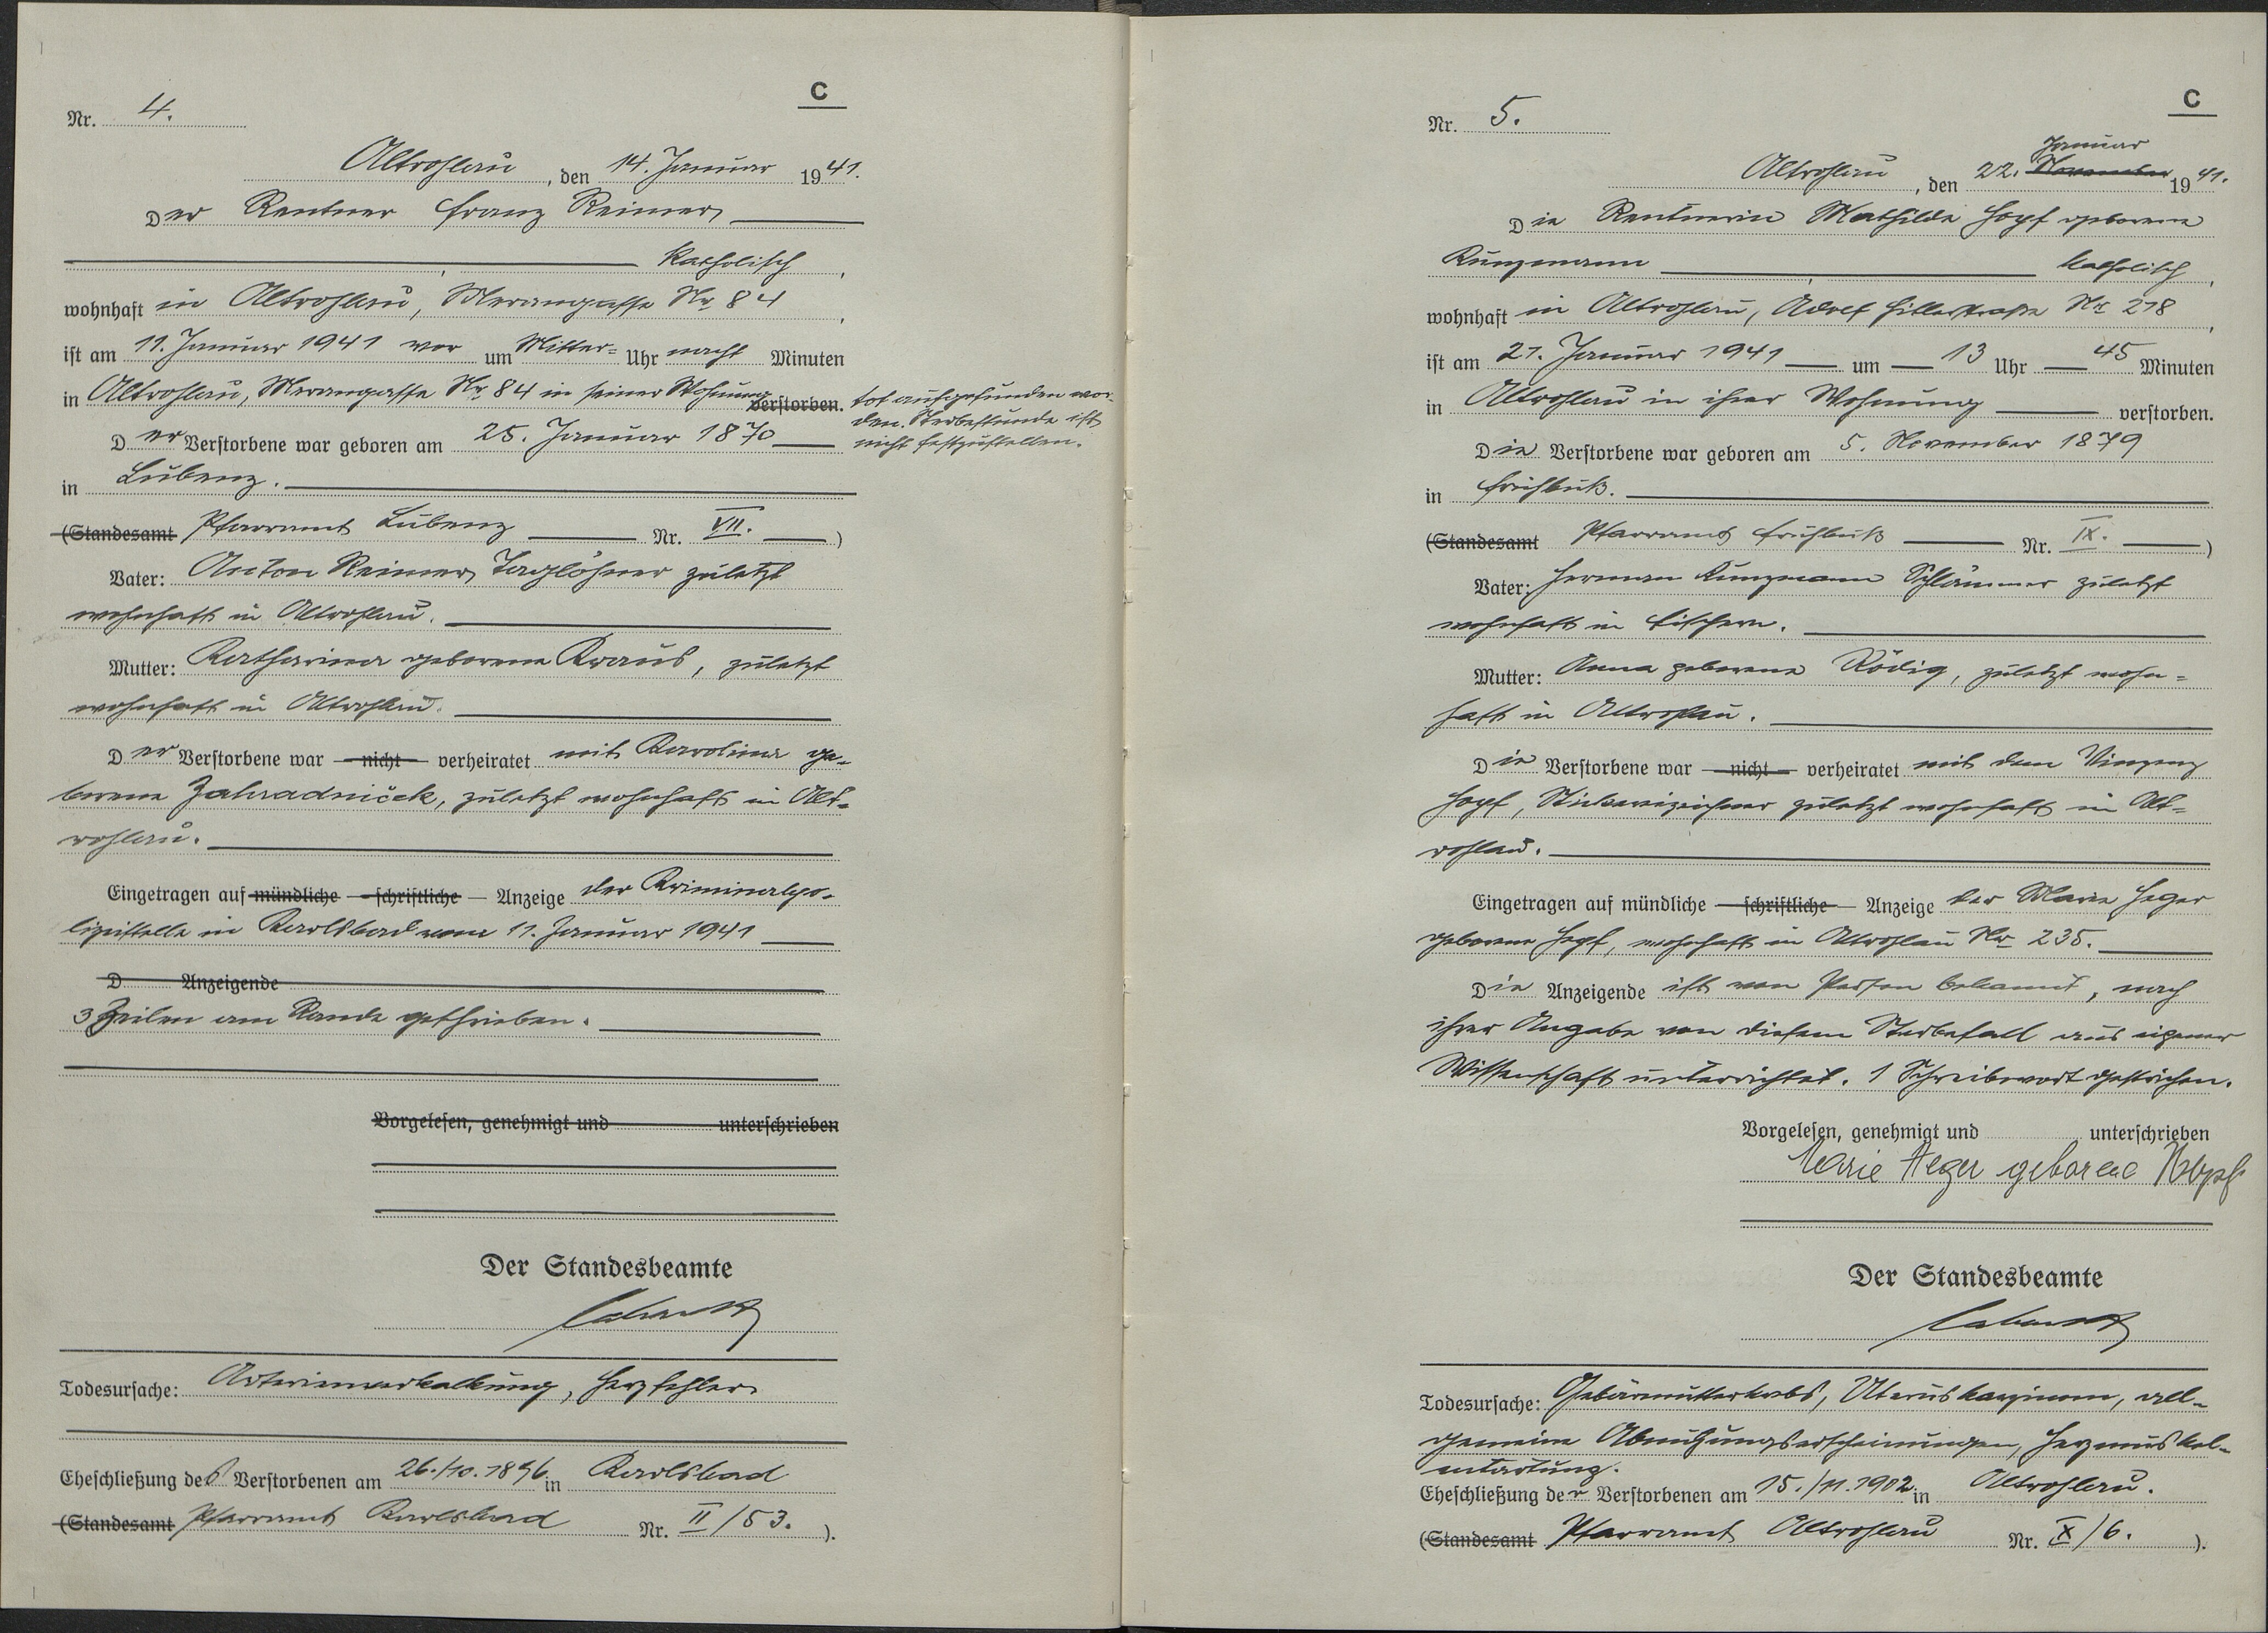 C
Nr. 4.
Altrohlau, den 14. Januar 1941.
Der Rentner Franz Reimer,
katholisch,
wohnhaft in Altrohlau, Merangasse Nr. 84,
ist am 11. Januar 1941 vor um Mitter= Uhr nacht Minuten
in Altrohlau, Merangasse Nr. 84 in seiner Wohnung verstorben. tot aufgefunden wor-
den. Sterbestunde ist
nicht festzustellen.
Der Verstorbene war geboren am 25. Januar 1870
in Lubenz.
(Standesamt Pfarramt Lubenz Nr. VII. )
Vater: Anton Reimer, Taglöhner zuletzt
wohnhaft in Altrohlau.
Mutter: Katharina geborene Kraus, zuletzt
wohnhaft in Altrohlau.
Der Verstorbene war — nicht — verheiratet mit Karolina ge-
borene Zahradniček, zuletzt wohnhaft in Alt-
rohlau.
Eingetragen auf mündliche — schriftliche — Anzeige der Kriminalpo-
lizeistelle in Karlsbad vom 11. Januar 1941
D Anzeigende
3 Zeilen am Rande geschrieben.
Vorgelesen, genehmigt und unterschrieben
Der Standesbeamte
Todesursache: Arterienverkalkung, Herzfehler
Eheschließung des Verstorbenen am 26./10. 1896 in Karlsbad
(Standesamt Pfarramt Karlsbad Nr. II/53. ).
C
Nr. 5.
Januar
Altrohlau, den 22. November 1941.
Die Rentnerin Mathilde Hopf geborene
Kunzmann katholisch,
wohnhaft in Altrohlau, Adolf Hitlerstraße Nr. 218,
ist am 21. Januar 1941 um 13 Uhr 45 Minuten
in Altrohlau in ihrer Wohnung verstorben.
Die Verstorbene war geboren am 5. November 1879
in Frühbuß.
(Standesamt Pfarramt Frühbuß Nr. IX. )
Vater: Herman Kunzmann Schlämmer zuletzt
wohnhaft in Fischern.
Mutter: Anna geborene Rödig, zuletzt wohn=
haft in Altrohlau.
Die Verstorbene war — nicht — verheiratet mit dem Vinzenz
Hopf, Stickereizeichner zuletzt wohnhaft in Alt=
rohlau.
Eingetragen auf mündliche — schriftliche — Anzeige der Marie Heger
geborene Hopf, wohnhaft in Altrohlau Nr. 235.
Die Anzeigende ist von Person bekannt, nach
ihrer Angabe von diesem Sterbefall aus eigener
Wissenschaft unterrichtet. 1 Schreibwort gestrichen.
Vorgelesen, genehmigt und unterschrieben
Marie Heger geborene Hopf
Der Standesbeamte
Todesursache: Gebärmutterkrebs, Uteruskarzinom, all-
gemeine Abnützungserscheinungen, Herzmuskel-
entartung.
Eheschließung der Verstorbenen am 15./11. 1902 in Altrohlau.
(Standesamt Pfarramt Altrohlau Nr. X/6. ).